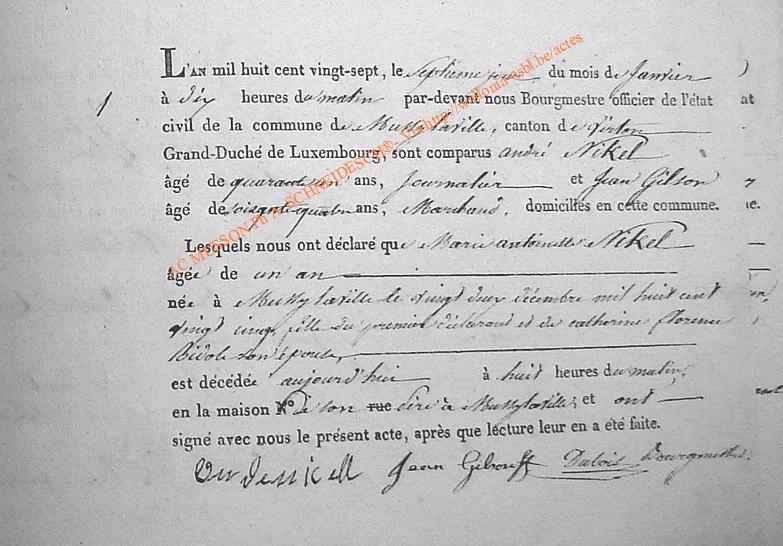 L'AN mil huit cent vingt-sept, le septieme jour du mois de Janvier
1 à dix heures du matin par-devant nous Bourgmestre officier de l'état
civil de la commune de Mussy la ville, canton de virton
Grand-Duché de Luxembourg, sont comparus andré Nikel
âgé de quarante ans, Journalier et Jean Gilson
âgé de soisante quatre ans, Marchand, domiciliés en cette commune.
Lesquels nous ont déclaré que Marie antoinette Nikel
âgée de un an
née à Mussy laville le vingt deux décembre mil huit cent
vingt cinq, fille du premier déclarant et de catherine florence
son épouse,
est décédée aujourd'hui à huit heures du matin,
en la maison N° de son rue père à Mussy laville, et ont
signé avec nous le présent acte, après que lecture leur en a été faite.
Jean Gilson Dubois Bourgmestre.
AC MUSSON-Ph A. SCHNEIDESCH®- Via http://wallonia-asbl.be/actes